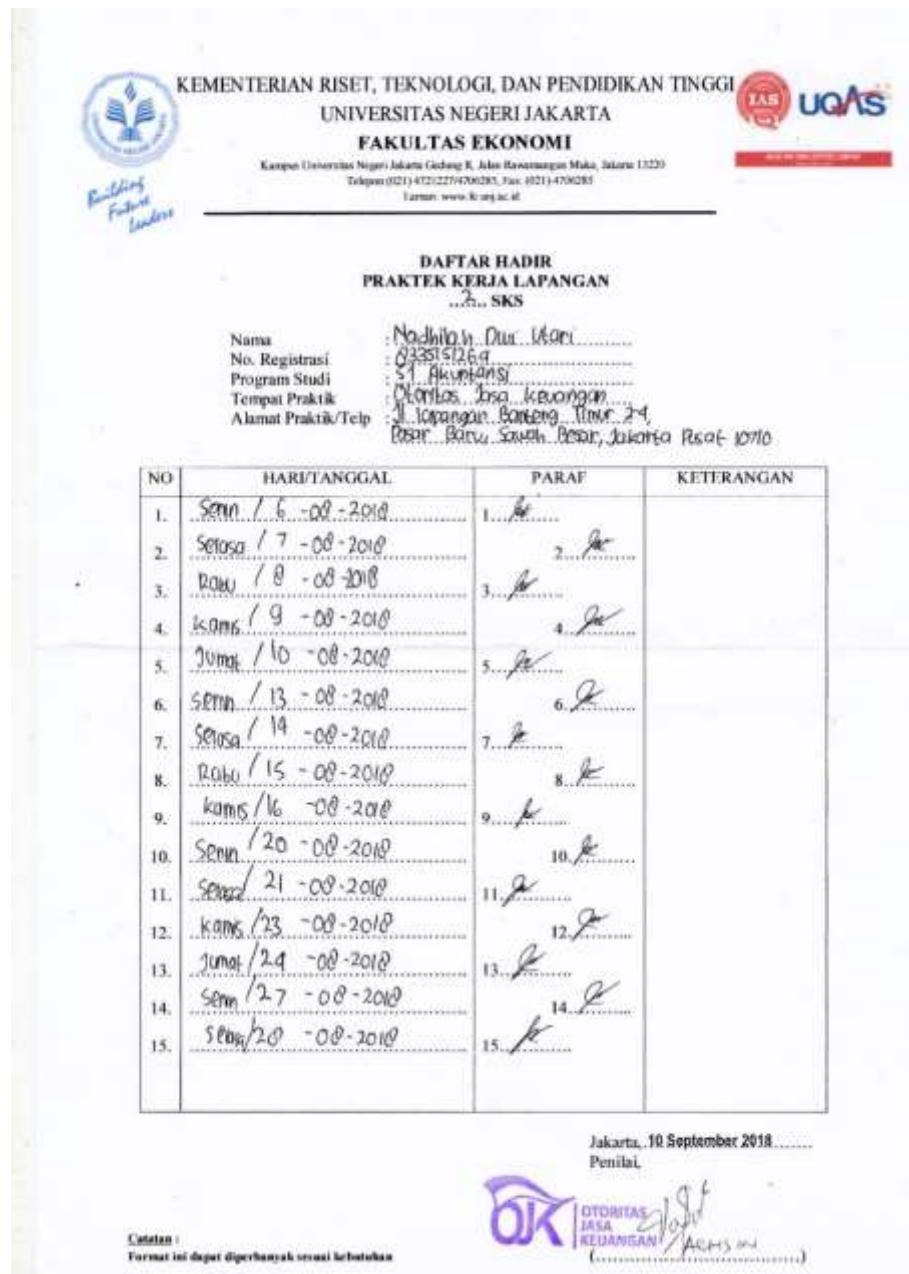 KEMENTERIAN RISET, TEKNOLOGI, DAN PENDIDIKAN TINGGI
UNIVERSITAS NEGERI JAKARTA
FAKULTAS EKONOMI
Kampus Universitas Negeri Jakarta Gedung R, Jalan Rawamangun Muka, Jakarta 13220
Telepon (021) 4721227/4706285, Fax: (021) 4706285
Laman: www.fe.unj.ac.id
IAS UQAS
Building
Future
Leaders
DAFTAR HADIR
PRAKTEK KERJA LAPANGAN
...2... SKS
Nama : Nadhilah Dwi Utari
No. Registrasi : 8335151269
Program Studi : S1 Akuntansi
Tempat Praktik : Otoritas Jasa Keuangan
Alamat Praktik/Telp : Jl. Lapangan Banteng Timur 2-4,
Pasar Baru, Sawah Besar, Jakarta Pusat 10710
NO HARI/TANGGAL PARAF KETERANGAN
1. Senin / 6 -08-2018 1.
2. Selasa / 7 -08-2018 2.
3. Rabu / 8 -08-2018 3.
4. Kamis / 9 -08-2018 4.
5. Jumat / 10 -08-2018 5.
6. Senin / 13 -08-2018 6.
7. Selasa / 14 -08-2018 7.
8. Rabu / 15 -08-2018 8.
9. Kamis / 16 -08-2018 9.
10. Senin / 20 -08-2018 10.
11. Selasa / 21 -08-2018 11.
12. Kamis / 23 -08-2018 12.
13. Jumat / 24 -08-2018 13.
14. Senin / 27 -08-2018 14.
15. Selasa / 28 -08-2018 15.
Jakarta, 10 September 2018
Penilai,
OJK OTORITAS
JASA
KEUANGAN
Catatan :
Format ini dapat diperbanyak sesuai kebutuhan